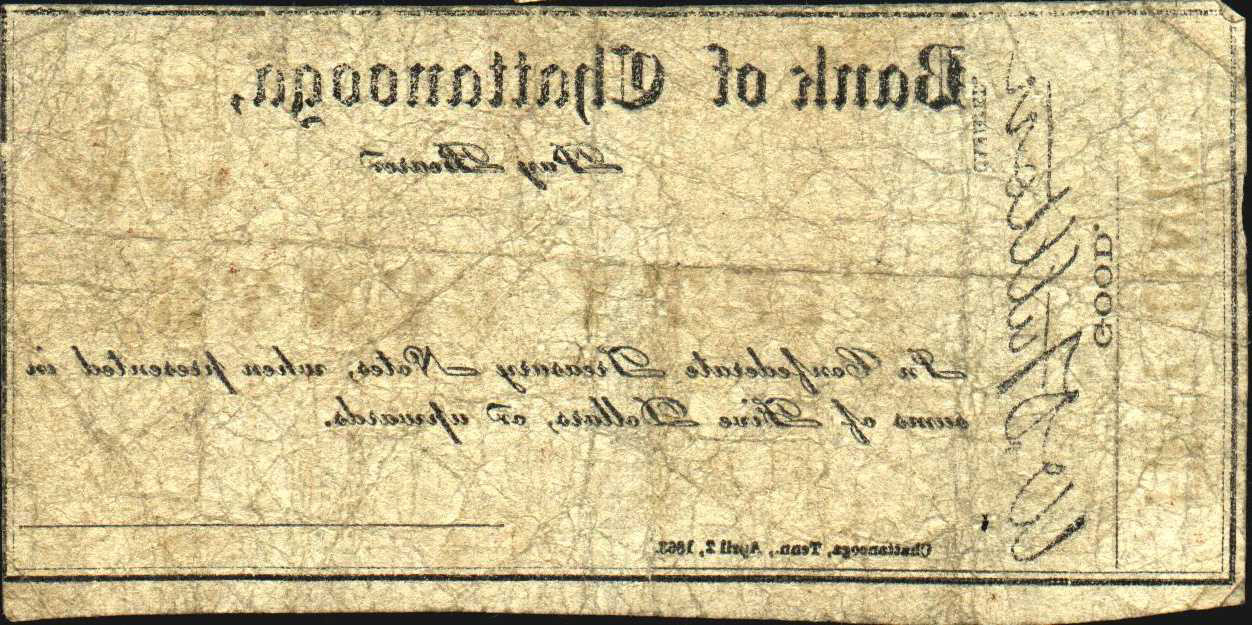 Bank of Chattanooga,
Pay Bearer
In Confederate Treasury Notes, when presented in
sums of Five Dollars, or upwards.
Chattanooga, Tenn., April 2, 1863.
GOOD.